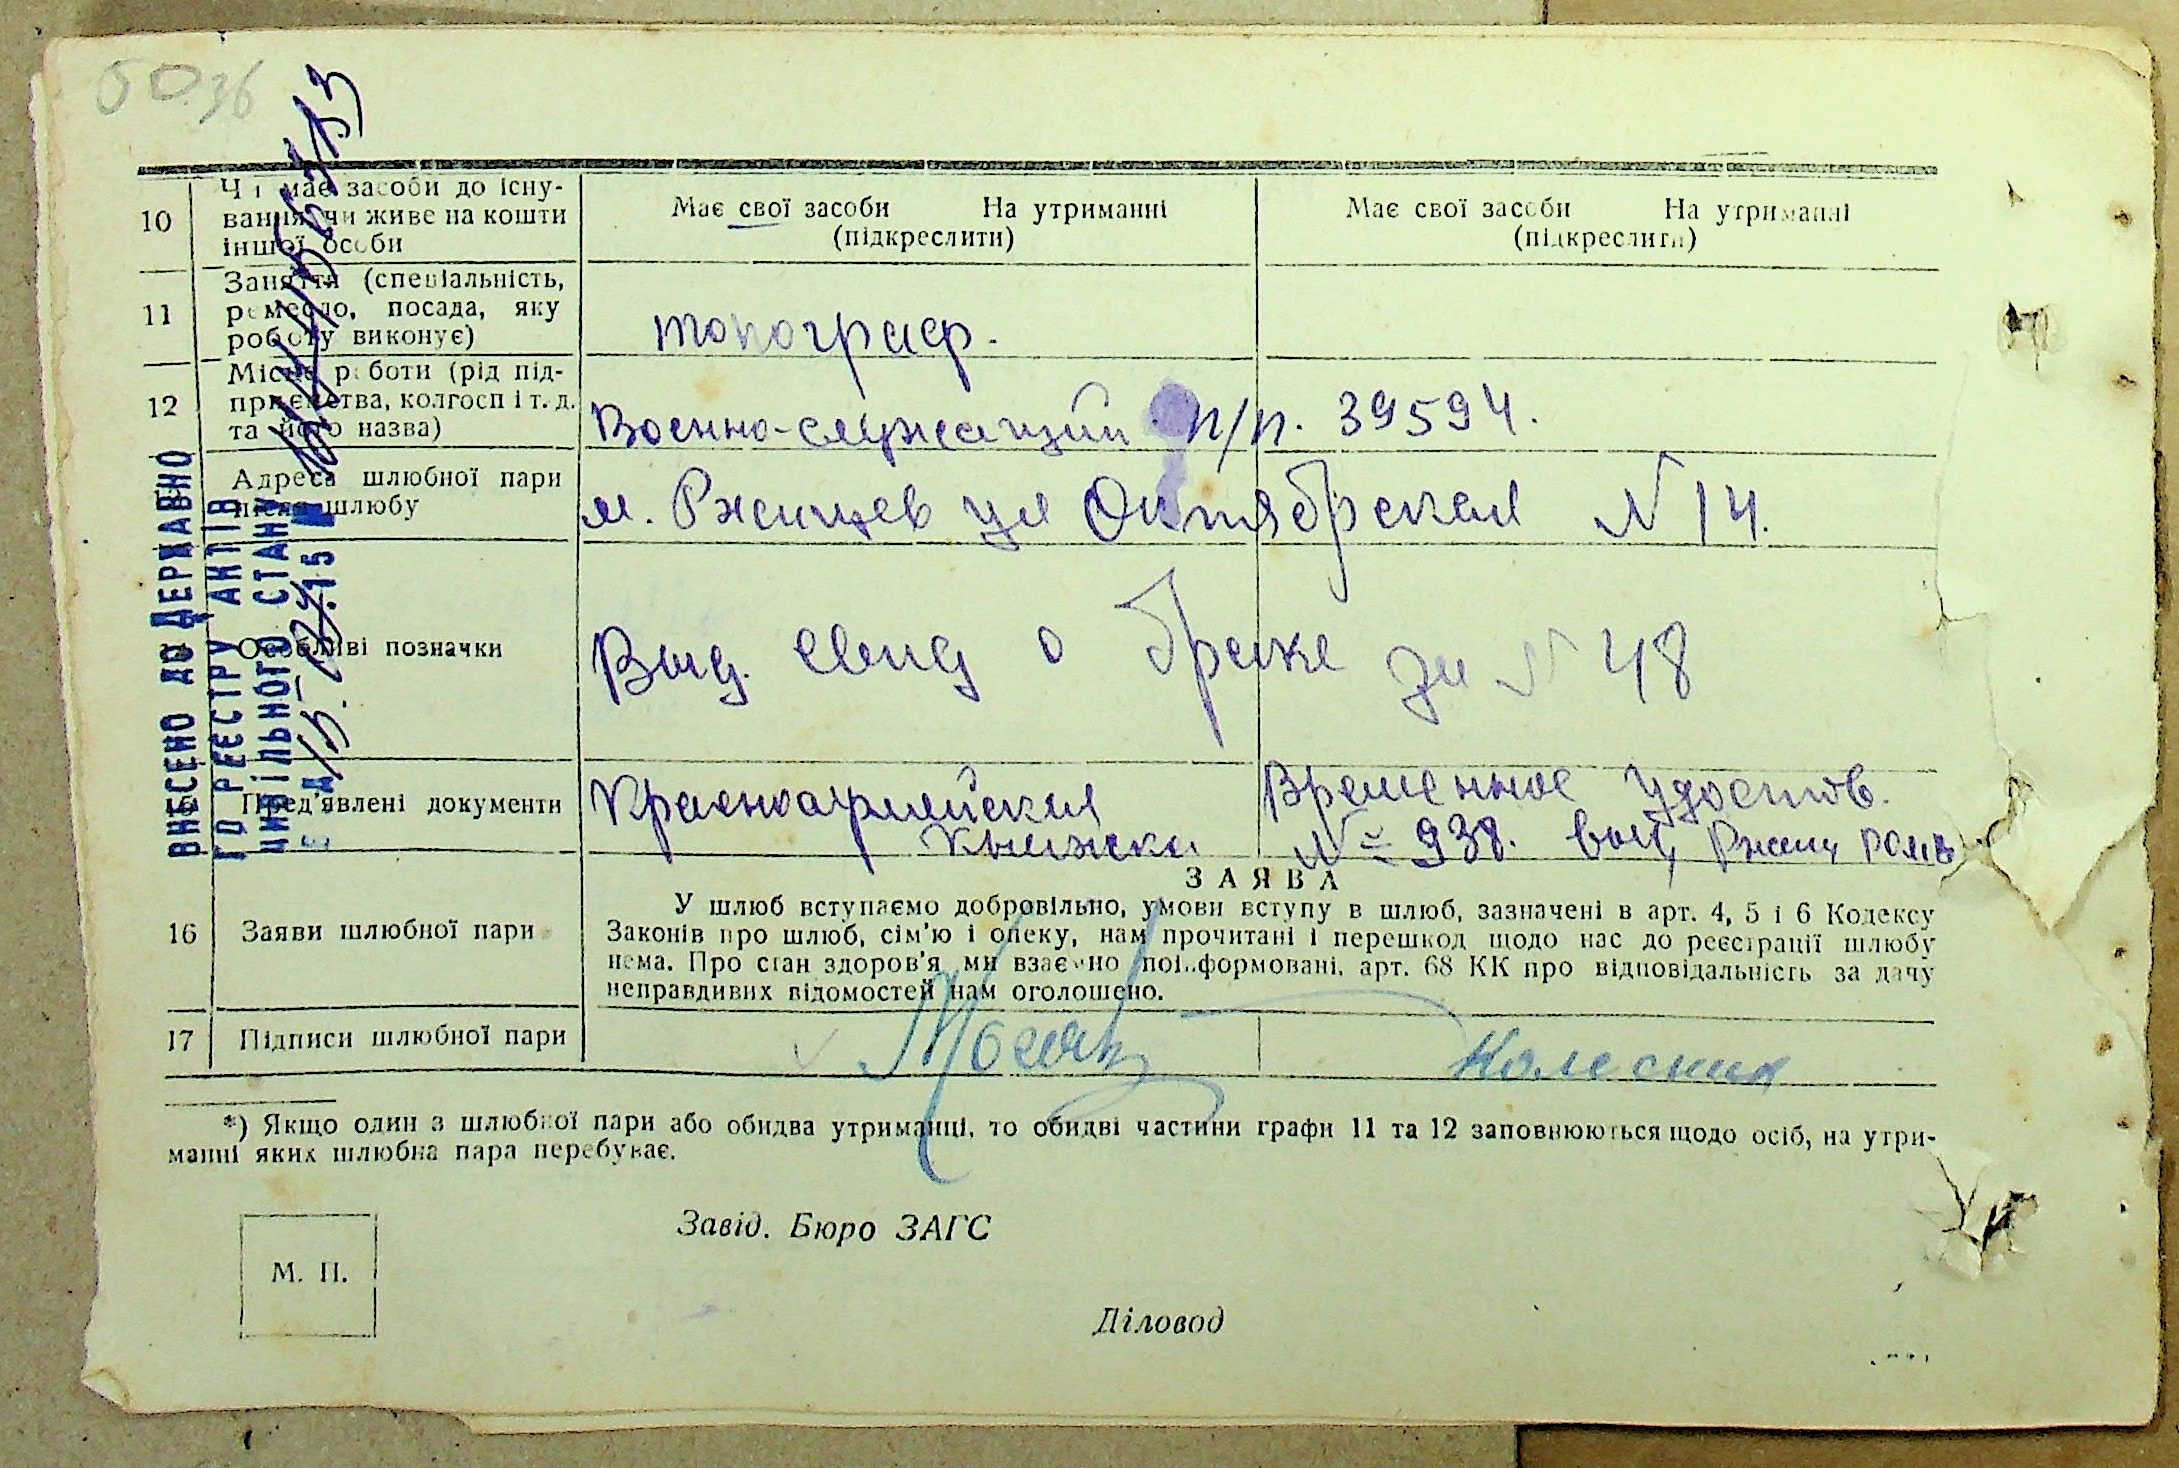 50 36
10
Чи має засоби до існу-
вання, чи живе на кошти
іншої особи
Має свої засоби На утриманні
(підкреслити)
Має свої засоби На утриманні
(підкреслити)
11
Заняття (спеціальність,
ремесло, посада, яку
роботу виконує)
топограф.
12
Місце роботи (рід під-
приємства, колгосп і т. д.
та його назва)
Военно-служащий п/п. 39594.
Адреса шлюбної пари
після шлюбу
м. Ржищев ул Октябрская № 14.
Особливі позначки
Выд. свид о браке за № 48
Пред'явлені документи
Красноармейская
Книжка
Временное удостов.
№ 938. выд, Ржищ
16
Заяви шлюбної пари
ЗАЯВА
У шлюб вступаємо добровільно, умови вступу в шлюб, зазначені в арт. 4, 5 і 6 Кодексу
Законів про шлюб, сім'ю і опеку, нам прочитані і перешкод щодо нас до реєстрації шлюбу
нема. Про стан здоров'я ми взаємно поінформовані, арт. 68 КК про відповідальність за дачу
неправдивих відомостей нам оголошено.
17
Підписи шлюбної пари
Колесник
*) Якщо один з шлюбної пари або обидва утриманці, то обидві частини графи 11 та 12 заповнюються щодо осіб, на утри-
манні яких шлюбна пара перебуває.
М. П.
Завід. Бюро ЗАГС
Діловод
ВНЕСЕНО ДО ДЕРЖАВНО
ГО РЕЄСТРУ АКТІВ
ЦИВІЛЬНОГО СТАНУ